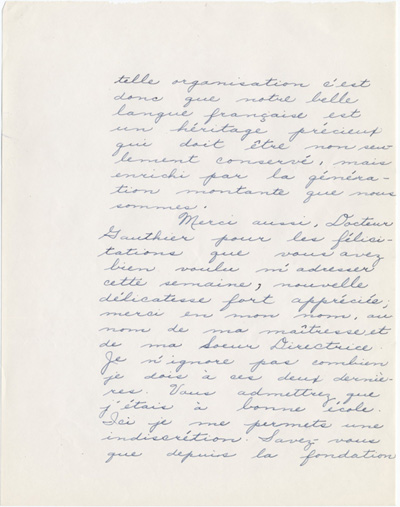 telle organisation c'est
donc que notre belle
langue française est
un héritage précieux
qui doit être non seu-
lement conservé, mais
enrichi par la généra-
tion montante que nous
sommes.
Merci aussi, Docteur
Gauthier pour les félici-
tations que vous avez
bien voulu m'adresser
cette semaine; nouvelle
délicatesse fort appréciée;
merci en mon nom, au
nom de ma maîtresse et
de ma Soeur Directrice.
Je n'ignore pas combien
je dois à ces deux derniè-
res. Vous admettrez que
j'étais à bonne école.
Ici je me permets une
indiscrétion. Savez-vous
que depuis la fondation